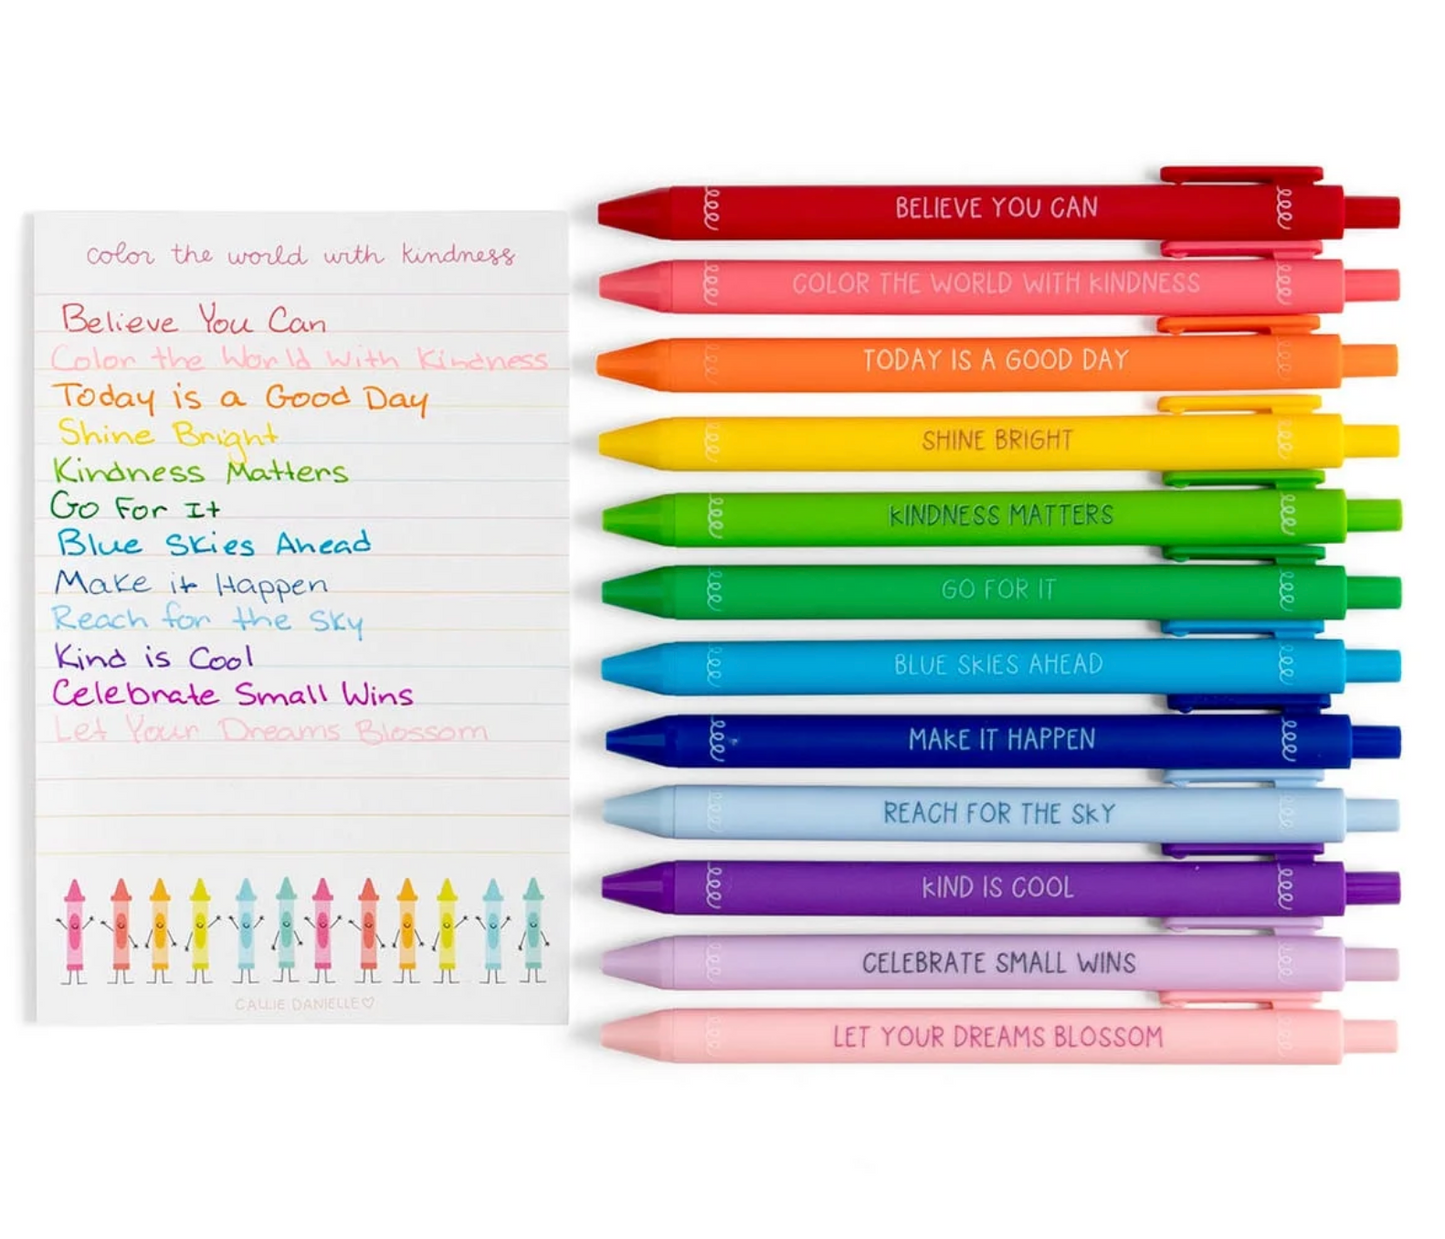 color the world with kindness
Believe You Can
Color the World With Kindness
Today is a Good Day
Shine Bright
Kindness Matters
Go For It
Blue Skies Ahead
Make it Happen
Reach for the Sky
Kind is Cool
Celebrate Small Wins
Let Your Dreams Blossom
CALLIE DANIELLE
BELIEVE YOU CAN
COLOR THE WORLD WITH KINDNESS
TODAY IS A GOOD DAY
SHINE BRIGHT
KINDNESS MATTERS
GO FOR IT
BLUE SKIES AHEAD
MAKE IT HAPPEN
REACH FOR THE SKY
KIND IS COOL
CELEBRATE SMALL WINS
LET YOUR DREAMS BLOSSOM